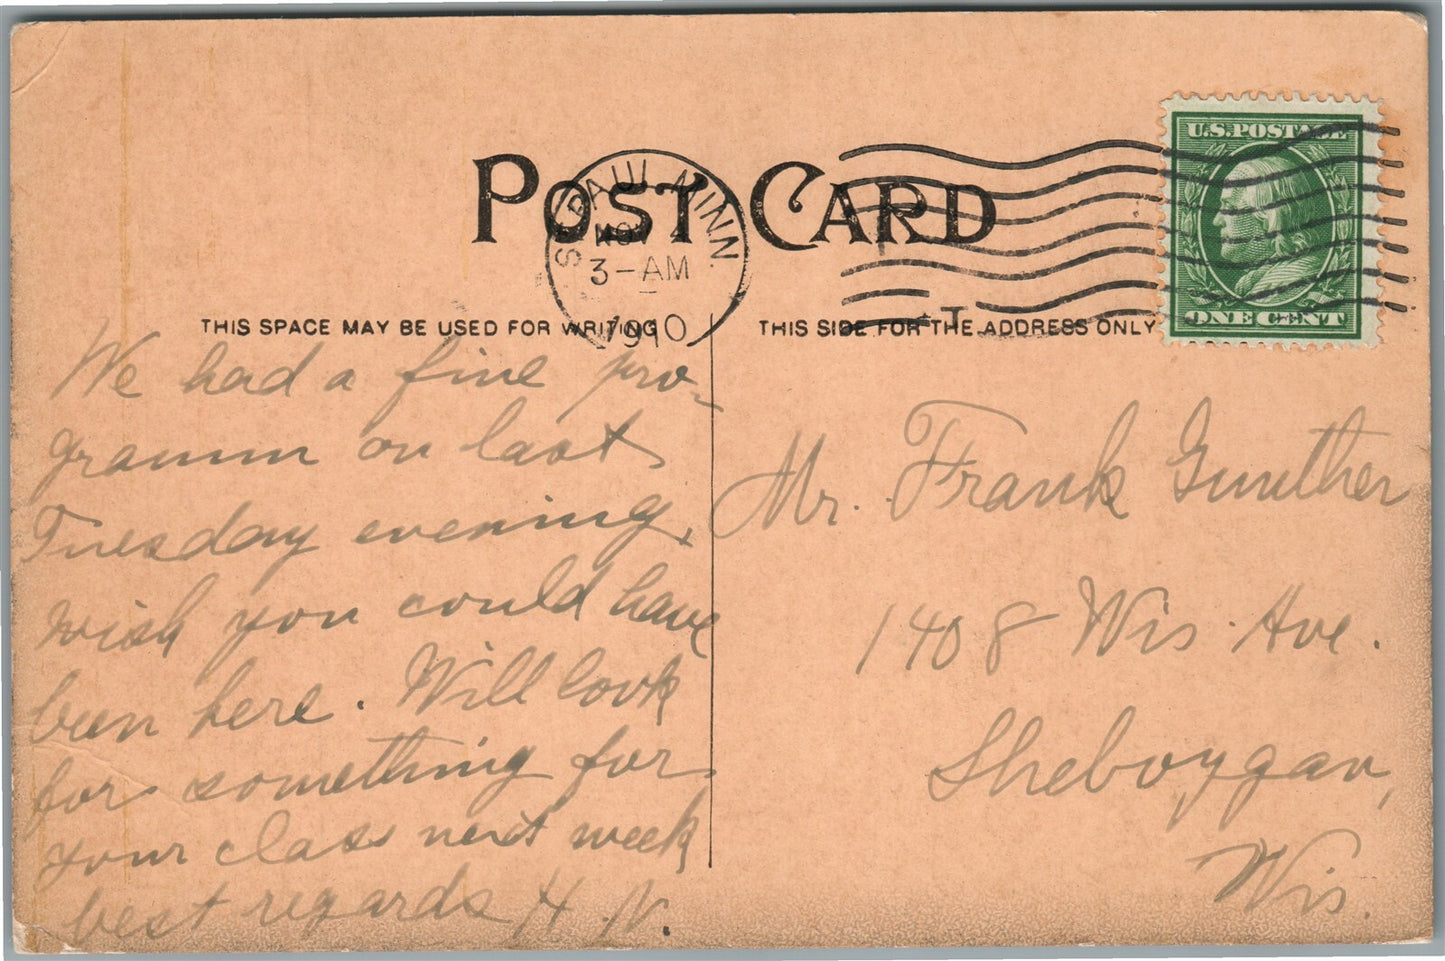 POST CARD
ST. PAUL, MINN.
NOV
3-AM
1910
U.S. POSTAGE
ONE CENT
THIS SPACE MAY BE USED FOR WRITING
THIS SIDE FOR THE ADDRESS ONLY
We had a fine pro-
gramm on last
Tuesday evening,
wish you could have
been here. Will look
for something for
your class next week
best regards H. N.
Mr. Frank Gunther
1408 Wis. Ave.
Sheboygan,
Wis.